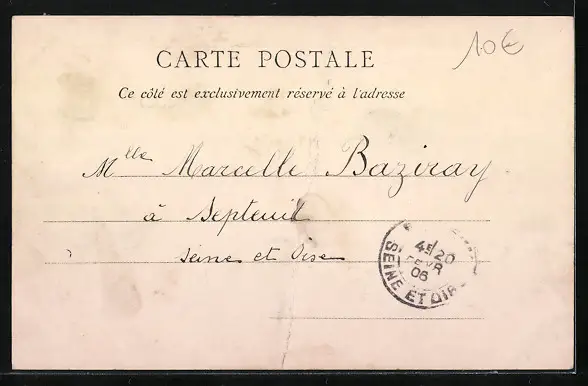 10€
CARTE POSTALE
Ce côté est exclusivement réservé à l'adresse
Mlle Marcelle Baziray
à Septeuil
Seine et Oise
4E/20
FEVR
06
SEINE ET OISE